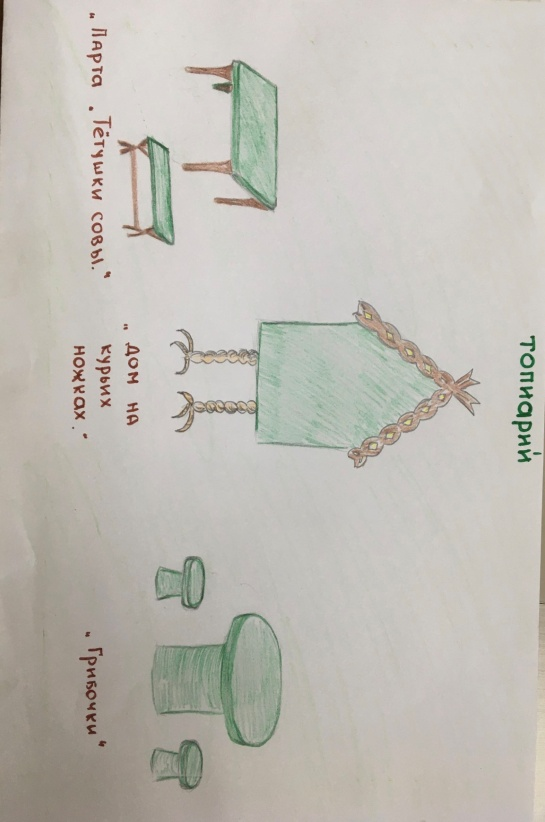 ТОПИАРИЙ
„ Парта . Тётушки совы. "
„ Дом на
курьих
ножках . "
„ Грибочки "